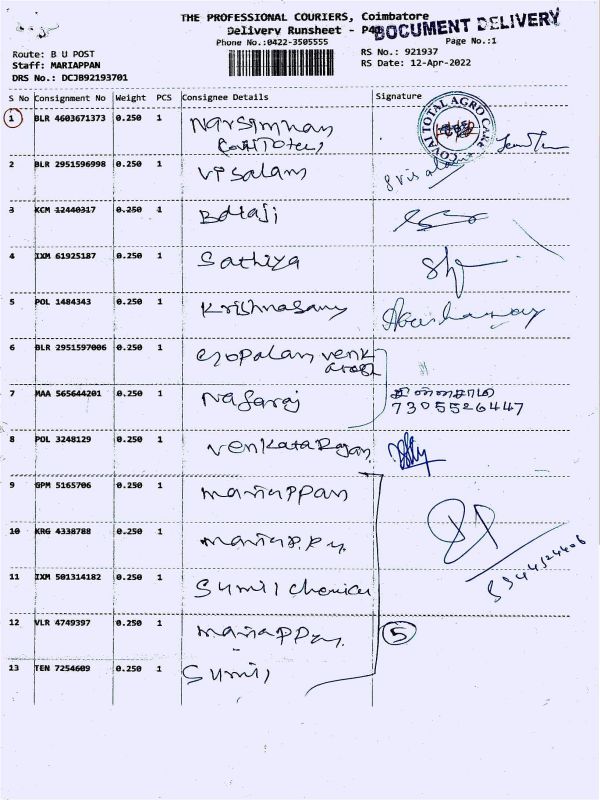 THE PROFESSIONAL COURIERS, Coimbatore
DOCUMENT DELIVERY
Delivery Runsheet - P4
Phone No.:0422-3505555
Page No.:1
Route: B U POST
RS No.: 921937
Staff: MARIAPPAN
RS Date: 12-Apr-2022
DRS No.: DCJB92193701
S No Consignment No Weight PCS Consignee Details Signature
1 BLR 4603671373 0.250 1 Narsimhan
COVAI TOTAL AGRO CARE
2 BLR 2951596998 0.250 1 Visalam
3 KCM 12440317 0.250 1 Balaji
4 IXM 61925187 0.250 1 Sathiya
5 POL 1484343 0.250 1 Krishnasamy
6 BLR 2951597006 0.250 1 Gopalan venk
7 MAA 565644201 0.250 1 Nagaraj
7305526447
8 POL 3248129 0.250 1 Venkatarajan
9 GPM 5165706 0.250 1 mariappan
10 KRG 4338788 0.250 1
11 IXM 501314182 0.250 1 Sumil
12 VLR 4749397 0.250 1 mariappan
5
13 TEN 7254609 0.250 1 Sumil